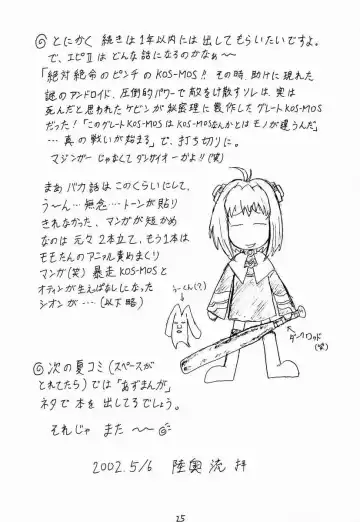 ◎ とにかく 続きは1年以内には出してもらいたいですよ。
で、エピⅡは どんな話になるのかなぁ〜
「絶対絶命のピンチのKOS-MOS!! その時、助けに現れた
謎のアンドロイド、圧倒的パワーで敵をけ散すソレは、実は
死んだと思われたケビンが秘密裡に製作したグレートKOS-MOS
だった!「このグレートKOS-MOSはKOS-MOSなんかとはモノが違うんだ」
…真の戦いが始まる」で、打ち切りに。
マジンガーじゃなくてダンガイオーかよ!!(笑)
まぁ バカ話はこのくらいにして、
う〜ん…無念…トーンが貼り
きれなかった。マンガが短かめ
なのは 元々2本立て、もう1本は
モモたんのアニャル責めまくり
マンガ(笑) 暴走KOS-MOSと
オティンが生えっぱなしになった
シオンが…(以下略)
うーくん(?)
(笑)
◎ 次の夏コミ(スペースが
とれてたら)では「あずまんが」
ネタで本を出してるでしょう。
それじゃ また 〜〜◎
2002.5/6 陸奥 流 拝
25